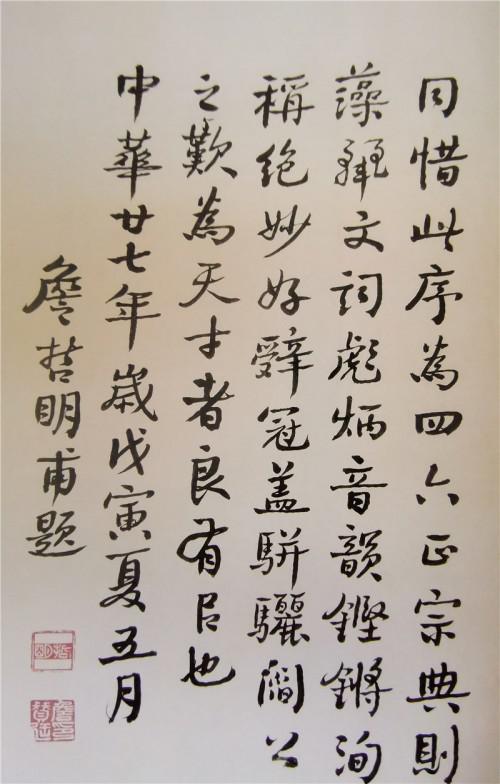 同惜此序為四六正宗典則
藻文詞彪炳音韻鏗鏘洵
稱絶妙好辭冠蓋駢驪閻公
之歎為天才者良有㠯也
中華廿七年歲戊寅夏五月
詹哲明甫題